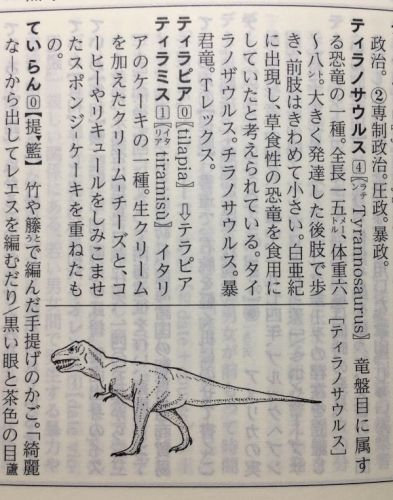 政治。②専制政治。圧政。暴政。
ティラノサウルス④〖ラテン Tyrannosaurus〗 竜盤目に属す
る恐竜の一種。全長一五メートル、体重六
〜八トン。大きく発達した後肢で歩
き、前肢はきわめて小さい。白亜紀
に出現し、草食性の恐竜を食用に
していたと考えられている。タイ
ラノザウルス。チラノサウルス。暴
君竜。Tレックス。
[ティラノサウルス]
ティラピア⓪〖tilapia〗 ⇨テラピア
ティラミス①〖イタリア tiramisù〗 イタリ
アのケーキの一種。生クリーム
を加えたクリーム-チーズと、コ
ーヒーやリキュールをしみこませ
たスポンジ-ケーキを重ねたも
の。
ていらん⓪【提▼籃】 竹や籐とうで編んだ手提げのかご。「綺麗
なーから出してレエスを編むだり/黒い眼と茶色の目蘆